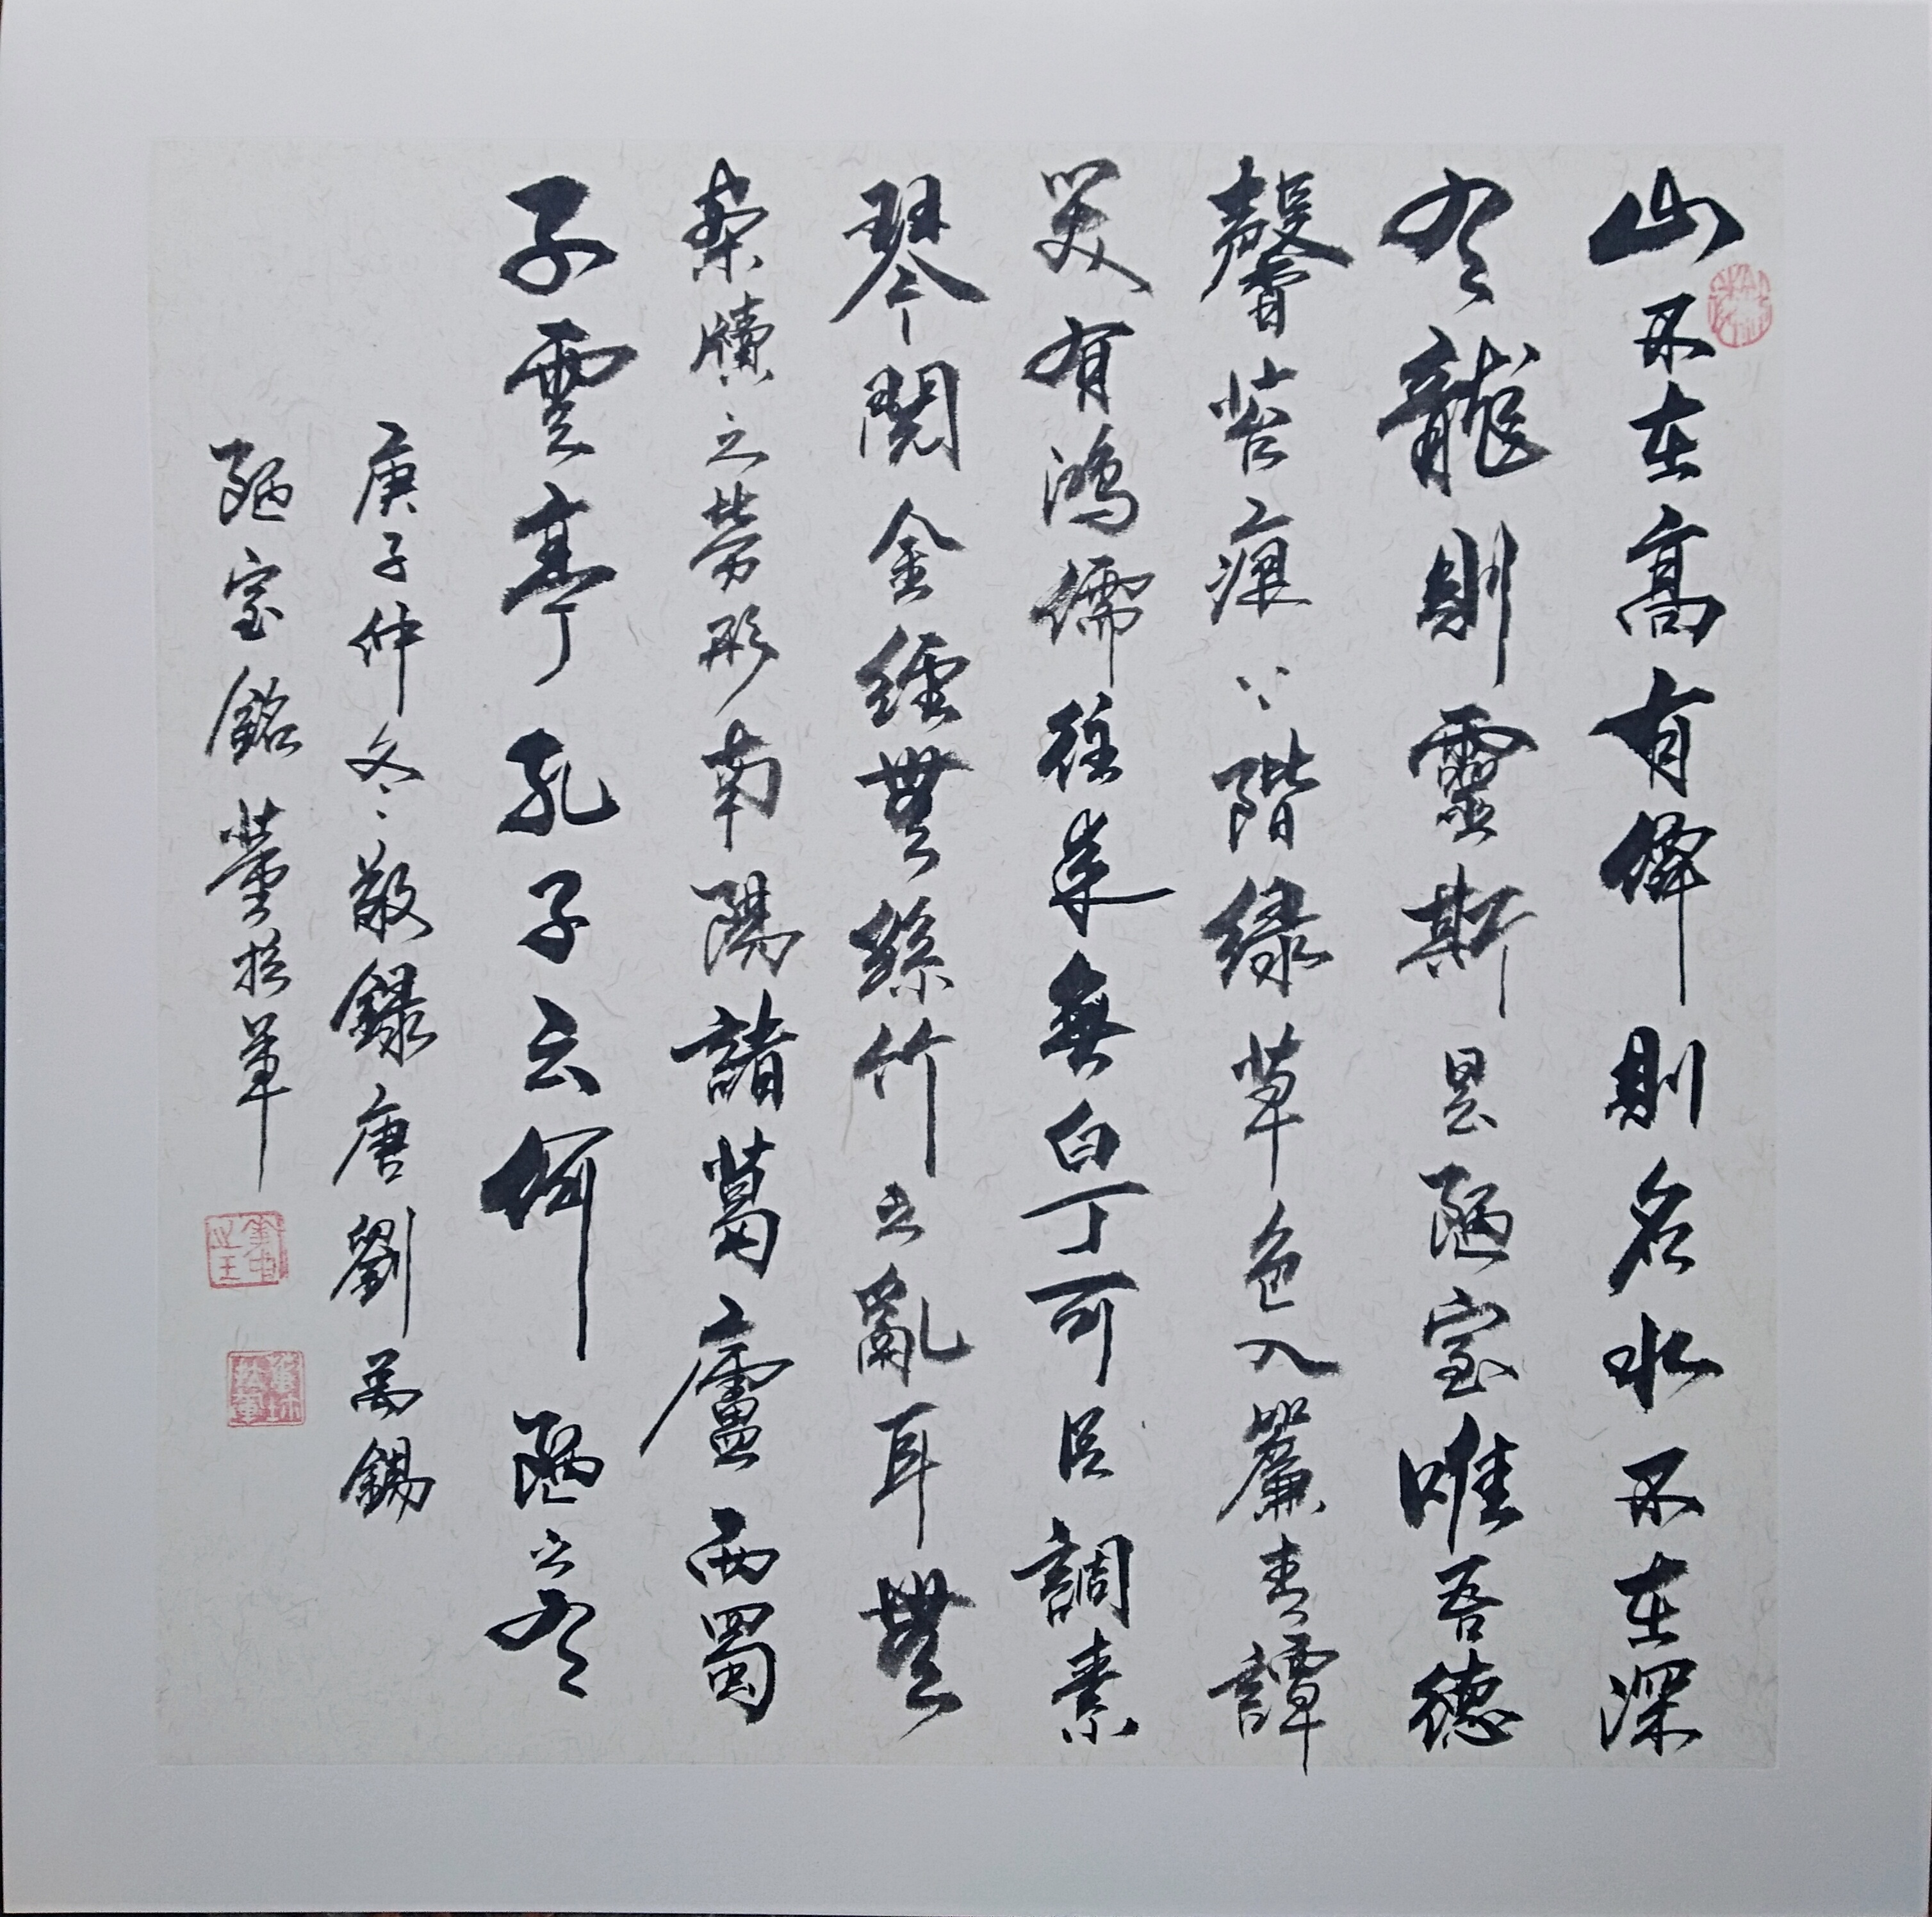 山不在高有僊則名水不在深
有龍則靈斯是陋室唯吾德
馨苔痕上階綠草色入簾青譚
笑有鴻儒往來無白丁可以調素
琴閱金經無絲竹之亂耳無
案牘之勞形南陽諸葛廬西蜀
子雲亭孔子云何陋之有
庚子仲冬敬錄唐劉禹錫
陋室銘 董